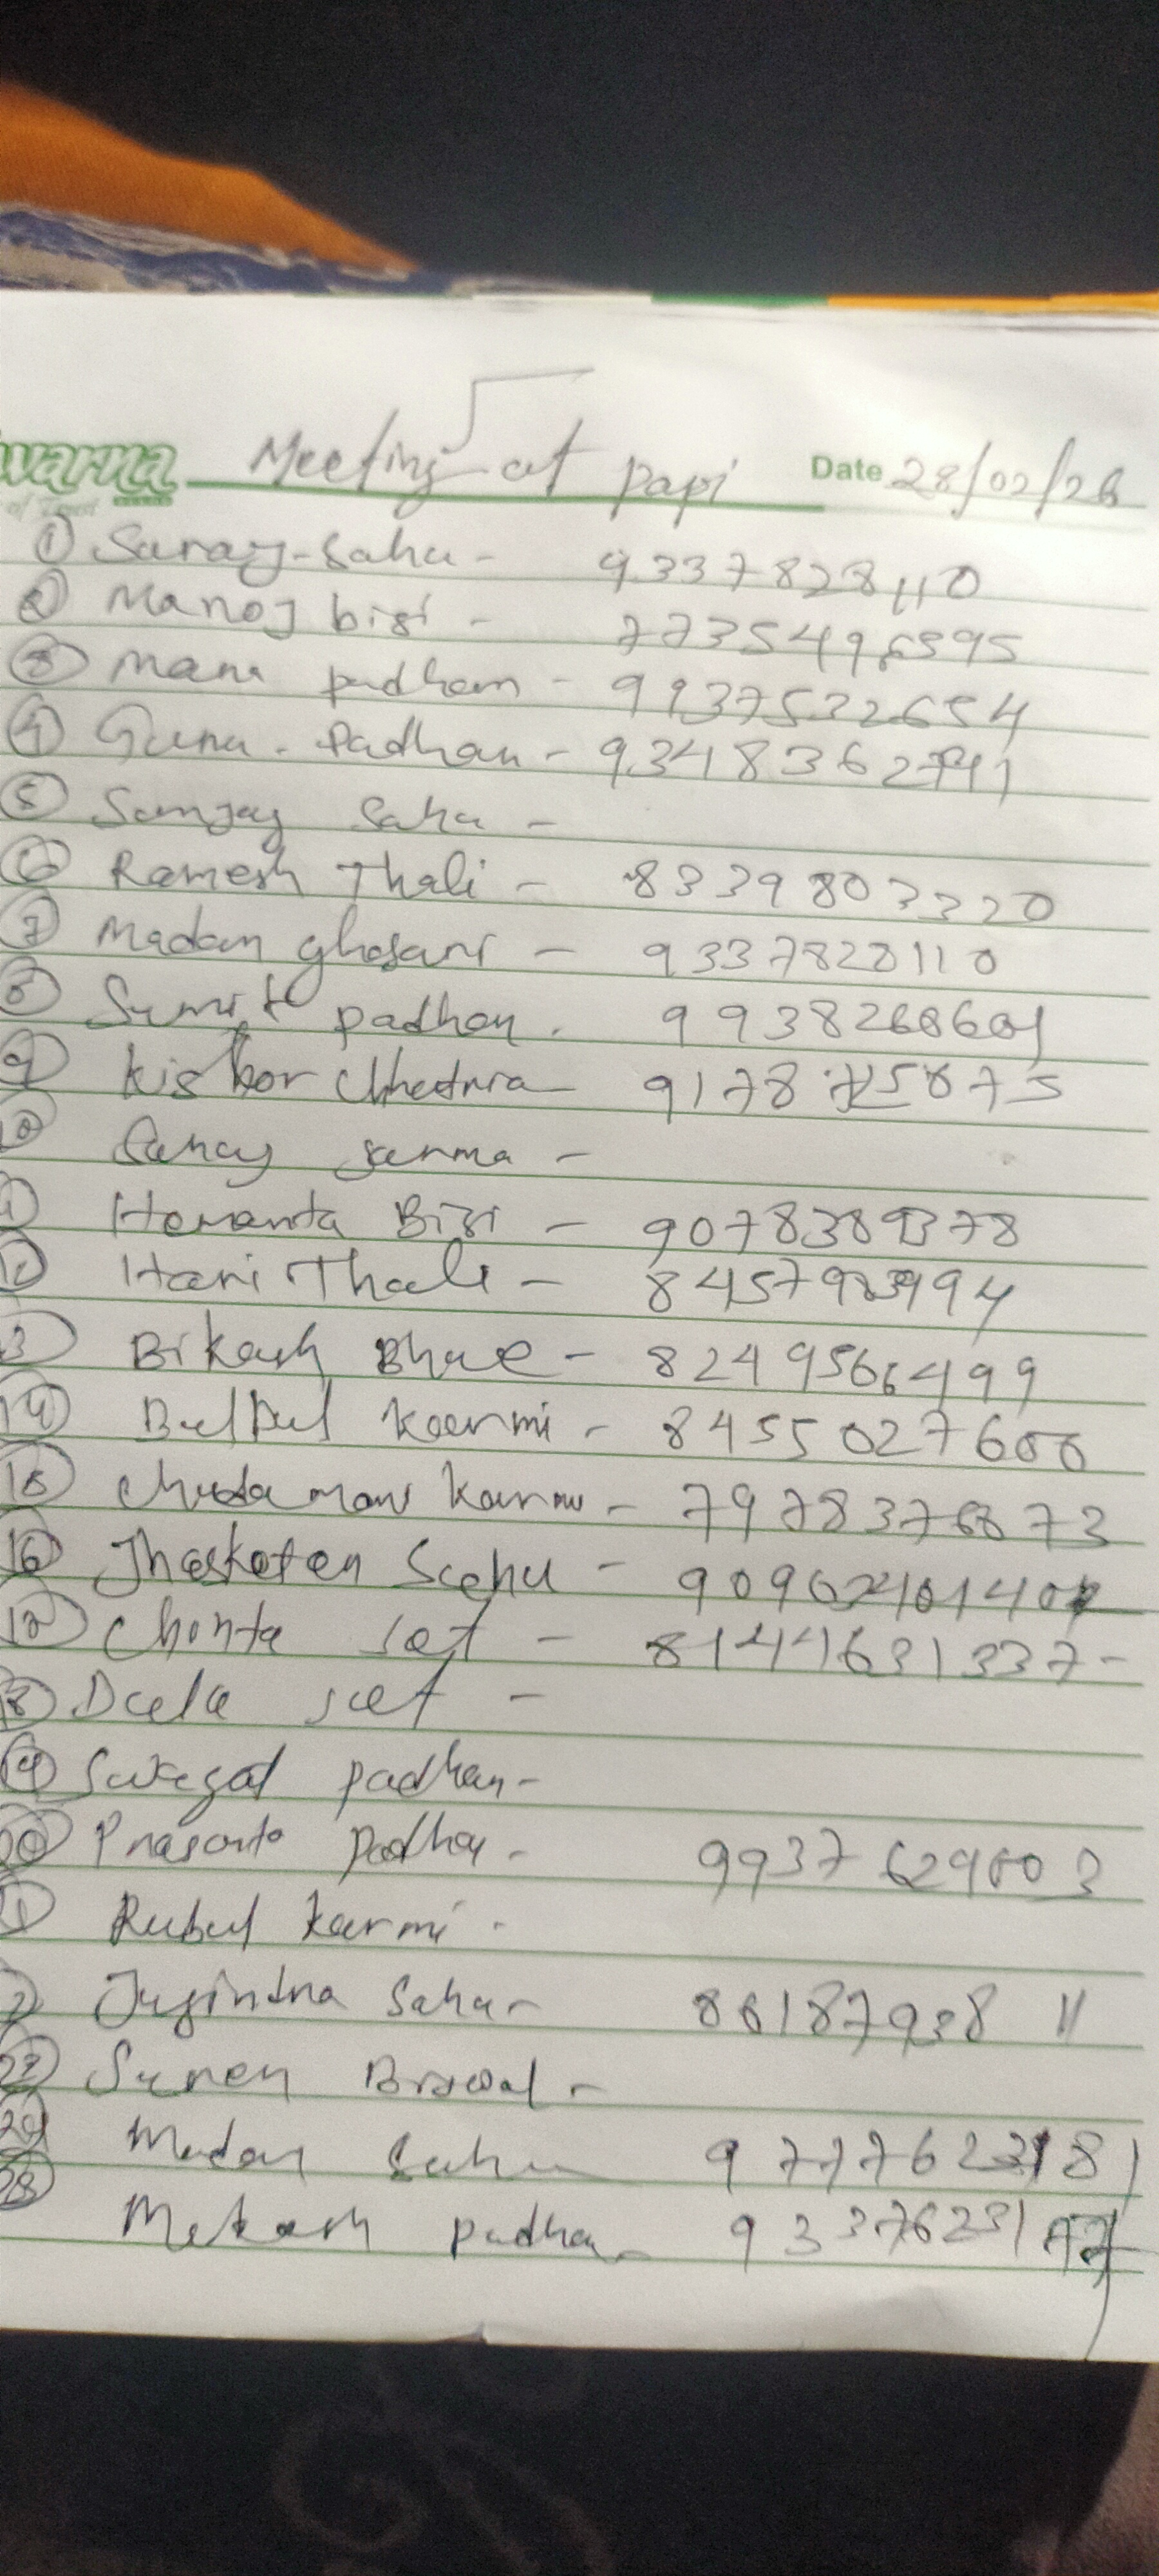 warna Meeting at papi Date 28/02/26
of Trust
① Saroj-Sahu - 9337828110
② Manoj bisi - 7735496595
③ Mana padhan - 9937532654
④ Guna. Padhan - 9348362741
⑤ Sanjay Sahu -
⑥ Ramesh Thali - 8339803320
⑦ Madan ghosari - 9337828110
⑧ Sumit padhan. 9938268601
⑨ Kishor Chhatria - 9178
Sanay sarma -
Hemanta Bisi - 9078389378
Hari Thali - 8457
Bikash Bhue - 8249566499
⑭ BulBul Karmi - 8455027600
⑮ Chudamani Karmi - 7978376873
⑯ Jhasketan Sahu -
⑰ Chonta set - 8144631337-
⑱ Dula set -
⑲ Swagat padhan -
⑳ Prasanta Padhan - 9937629803
Rubul Karmi -
Jugindra Sahu - 86187938 11
㉓ Suren Biswal -
㉔ Madan Sahu
Mukesh padhan